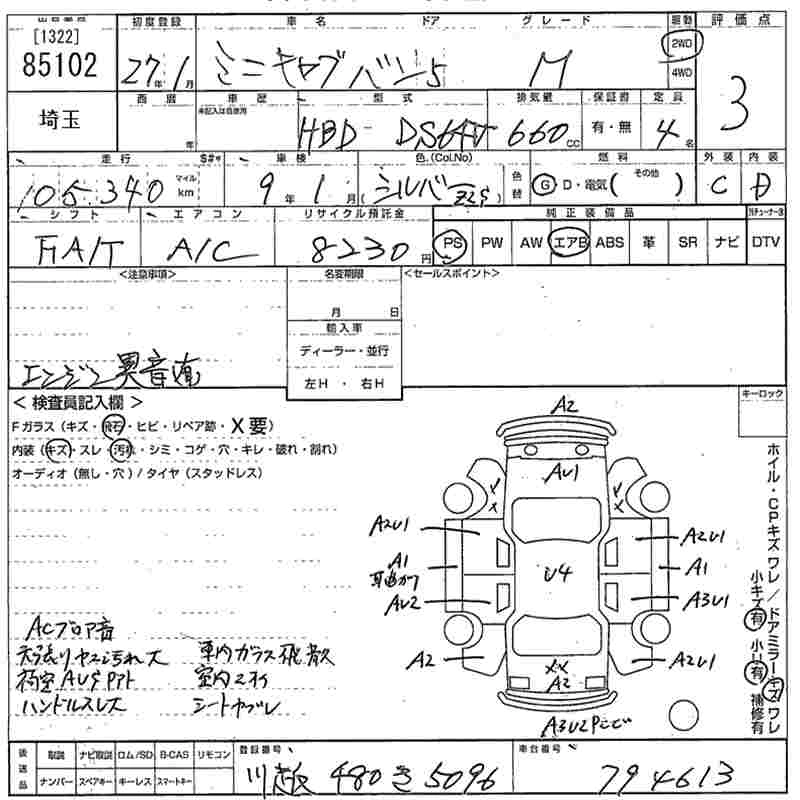 出品番号 初度登録 車名 ドア グレード 駆動 評価点
[1322]
85102
27年1月 ミニキャブバン 5 M 2WD 4WD 3
埼玉 西暦 年 車歴 未記入は自家用 型式 排気量 保証書 定員
HBD-DS64V 660cc 有・無 4名
走行 車検 色.(Col.No) 色替 燃料 外装 内装
105,340 マイル km 9年1月 シルバー Z2S G D・電気( その他 ) C D
シフト エアコン リサイクル預託金 純正装備品
FAT A/C 8230円 PS PW AW エアB ABS 革 SR ナビ DTV
<注意事項> 名変期限 <セールスポイント>
月 日
輸入車
ディーラー・並行
左H・右H
エンジン異音有
<検査員記入欄> キーロック
Fガラス (キズ・飛石・ヒビ・リペア跡・X要)
内装 (キズ・スレ・汚れ・シミ・コゲ・穴・キレ・破れ・割れ)
オーディオ (無し・穴) / タイヤ (スタッドレス)
A2
AU1
A2U1 A2U1
A1 A1
U4
AU2 A3U1
A2 A2U1
XX
A2
A3U2
ホイル・CPキズ ワレ / ドアミラーキズ ワレ
小キズ有 小U有 補修有
ACブロア音
天張りヤブレ汚れ大 車内ガラス飛散
ハンドルスレ大 シートヤブレ
後送品 取説 ナビ取説 ロム/SD B-CAS リモコン 登録番号 車台番号
ナンバー スペアキー キーレス スマートキー 川越 480 き 5096 794613